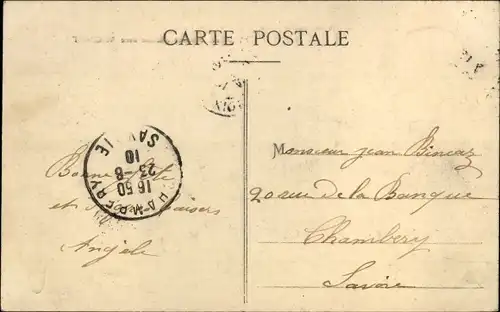 CARTE POSTALE
Bonne fête
et baisers
Angèle
CHAMBERY
SAVOIE
16 50
23-8
10
Monsieur Jean
20 rue de la Banque
Chambéry
Savoie